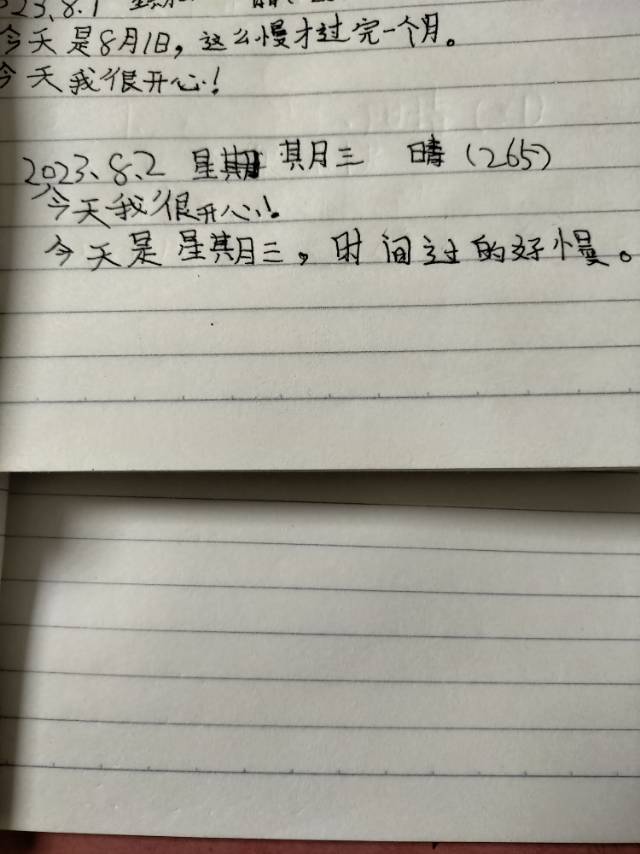 2023、8.1 星期 晴
今天是8月1日，这么慢才过完一个月。
今天我很开心！
2023、8.2 星期 期三 晴（265）
今天我很开心！
今天是星期三，时间过的好慢。